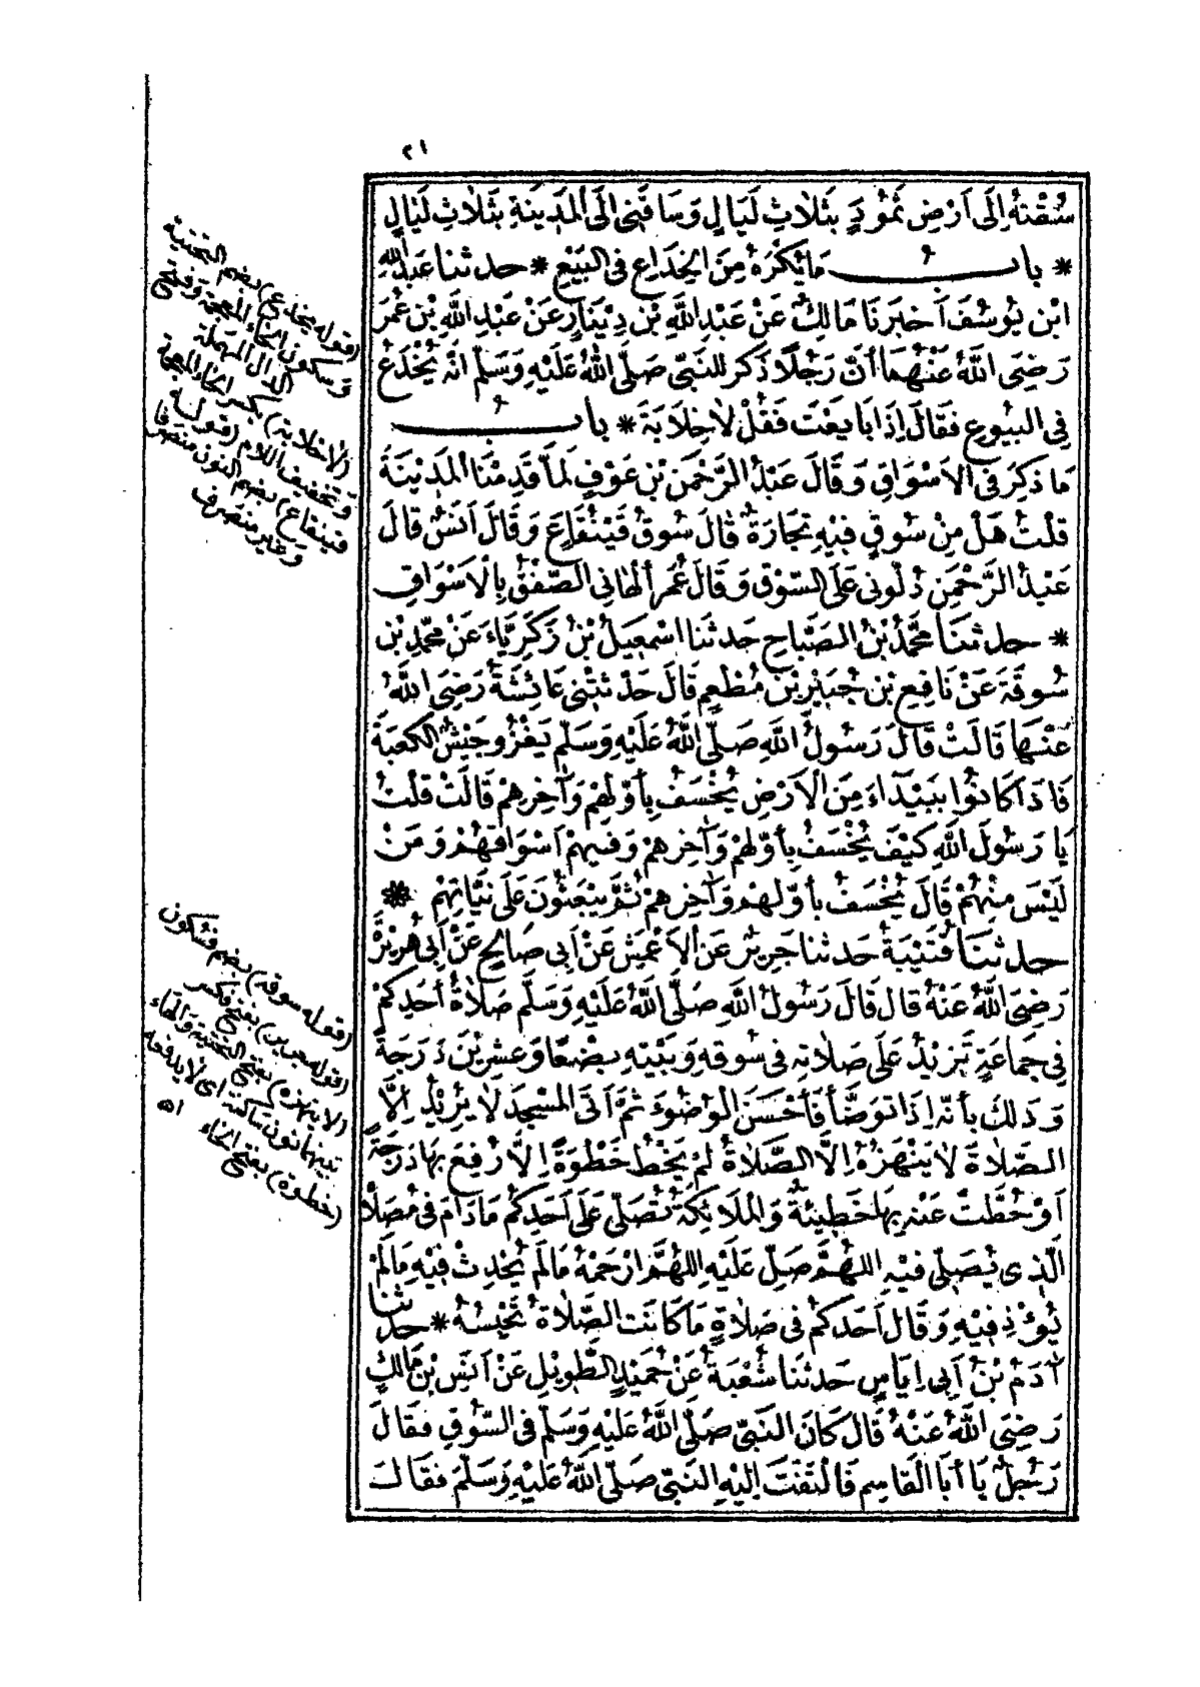 ٢١
سُقْتَهُ إِلَى أَرْضِ ثَمُودَ بِثَلَاثِ لَيَالٍ وَسَاقَنِي إِلَى الْمَدِينَةِ بِثَلَاثِ لَيَالٍ
* بابُ مَا يُكْرَهُ مِنَ الْخِدَاعِ فِي الْبَيْعِ * حدثنا عَبْدُ اللهِ
ابْنُ يُوسُفَ أَخْبَرَنَا مَالِكٌ عَنْ عَبْدِ اللهِ بْنِ دِينَارٍ عَنْ عَبْدِ اللهِ بْنِ عُمَرَ
رَضِيَ اللهُ عَنْهُمَا أَنَّ رَجُلًا ذَكَرَ لِلنَّبِيِّ صَلَّى اللهُ عَلَيْهِ وَسَلَّمَ أَنَّهُ يُخْدَعُ
فِي الْبُيُوعِ فَقَالَ إِذَا بَايَعْتَ فَقُلْ لَا خِلَابَةَ * بابُ
مَا ذُكِرَ فِي الْأَسْوَاقِ وَقَالَ عَبْدُ الرَّحْمَنِ بْنُ عَوْفٍ لَمَّا قَدِمْنَا الْمَدِينَةَ
قُلْتُ هَلْ مِنْ سُوقٍ فِيهِ تِجَارَةٌ قَالَ سُوقُ قَيْنُقَاعَ وَقَالَ أَنَسٌ قَالَ
عَبْدُ الرَّحْمَنِ دُلُّونِي عَلَى السُّوقِ وَقَالَ عُمَرُ أَلْهَانِي الصَّفْقُ بِالْأَسْوَاقِ
* حدثنا مُحَمَّدُ بْنُ الصَّبَّاحِ حَدثنَا إِسْمَعِيلُ بْنُ زَكَرِيَّاءَ عَنْ مُحَمَّدِ بْنِ
سُوقَةَ عَنْ نَافِعِ بْنِ جُبَيْرِ بْنِ مُطْعِمٍ قَالَ حَدَّثَتْنِي عَائِشَةُ رَضِيَ اللهُ
عَنْهَا قَالَتْ قَالَ رَسُولُ اللهِ صَلَّى اللهُ عَلَيْهِ وَسَلَّمَ يَغْزُو جَيْشٌ الْكَعْبَةَ
فَإِذَا كَانُوا بِبَيْدَاءَ مِنَ الْأَرْضِ يُخْسَفُ بِأَوَّلِهِمْ وَآخِرِهِمْ قَالَتْ قُلْتُ
يَا رَسُولَ اللهِ كَيْفَ يُخْسَفُ بِأَوَّلِهِمْ وَآخِرِهِمْ وَفِيهِمْ أَسْوَاقُهُمْ وَمَنْ
لَيْسَ مِنْهُمْ قَالَ يُخْسَفُ بِأَوَّلِهِمْ وَآخِرِهِمْ ثُمَّ يُبْعَثُونَ عَلَى نِيَّاتِهِمْ *
حدثنَا قُتَيْبَةُ حَدثنا جَرِيرٌ عَنِ الْأَعْمَشِ عَنْ أَبِي صَالِحٍ عَنْ أَبِي هُرَيْرَةَ
رَضِيَ اللهُ عَنْهُ قَالَ قَالَ رَسُولُ اللهِ صَلَّى اللهُ عَلَيْهِ وَسَلَّمَ صَلَاةُ أَحَدِكُمْ
فِي جَمَاعَةٍ تَزِيدُ عَلَى صَلَاتِهِ فِي سُوقِهِ وَبَيْتِهِ بِضْعًا وَعِشْرِينَ دَرَجَةً
وَذَلِكَ بِأَنَّهُ إِذَا تَوَضَّأَ فَأَحْسَنَ الْوُضُوءَ ثُمَّ أَتَى الْمَسْجِدَ لَا يُرِيدُ إِلَّا
الصَّلَاةَ لَا يَنْهَزُهُ إِلَّا الصَّلَاةُ لَمْ يَخْطُ خَطْوَةً إِلَّا رُفِعَ بِهَا دَرَجَةً
أَوْ حُطَّتْ عَنْهُ بِهَا خَطِيئَةٌ وَالْمَلَائِكَةُ تُصَلِّي عَلَى أَحَدِكُمْ مَا دَامَ فِي مُصَلَّاهُ
الَّذِي يُصَلِّي فِيهِ اللَّهُمَّ صَلِّ عَلَيْهِ اللَّهُمَّ ارْحَمْهُ مَا لَمْ يُحْدِثْ فِيهِ مَا لَمْ
يُؤْذِ فِيهِ وَقَالَ أَحَدُكُمْ فِي صَلَاةٍ مَا كَانَتِ الصَّلَاةُ تَحْبِسُهُ * حدثنا
آدَمُ بْنُ أَبِي إِيَاسٍ حَدثنَا شُعْبَةُ عَنْ حُمَيْدٍ الطَّوِيلِ عَنْ أَنَسِ بْنِ مَالِكٍ
رَضِيَ اللهُ عَنْهُ قَالَ كَانَ النَّبِيُّ صَلَّى اللهُ عَلَيْهِ وَسَلَّمَ فِي السُّوقِ فَقَالَ
رَجُلٌ يَا أَبَا الْقَاسِمِ فَالْتَفَتَ إِلَيْهِ النَّبِيُّ صَلَّى اللهُ عَلَيْهِ وَسَلَّمَ فَقَالَ
(قوله يخدع) بضم التحتية
وسكون الخاء المعجمة وفتح
الدال المهملة
(لا خلابة) بكسر الخاء المعجمة
وتخفيف اللام (قوله
قينقاع) بضم النون منصرفا
وغير منصرف
(قوله سوقة) بضم فسكون
(قوله جرير) بفتح فكسر
(لا ينهزه) بفتح التحتية والهاء
بينهما نون ساكنة اى لا يدفعه
(خطوة) بفتح الخاء اه